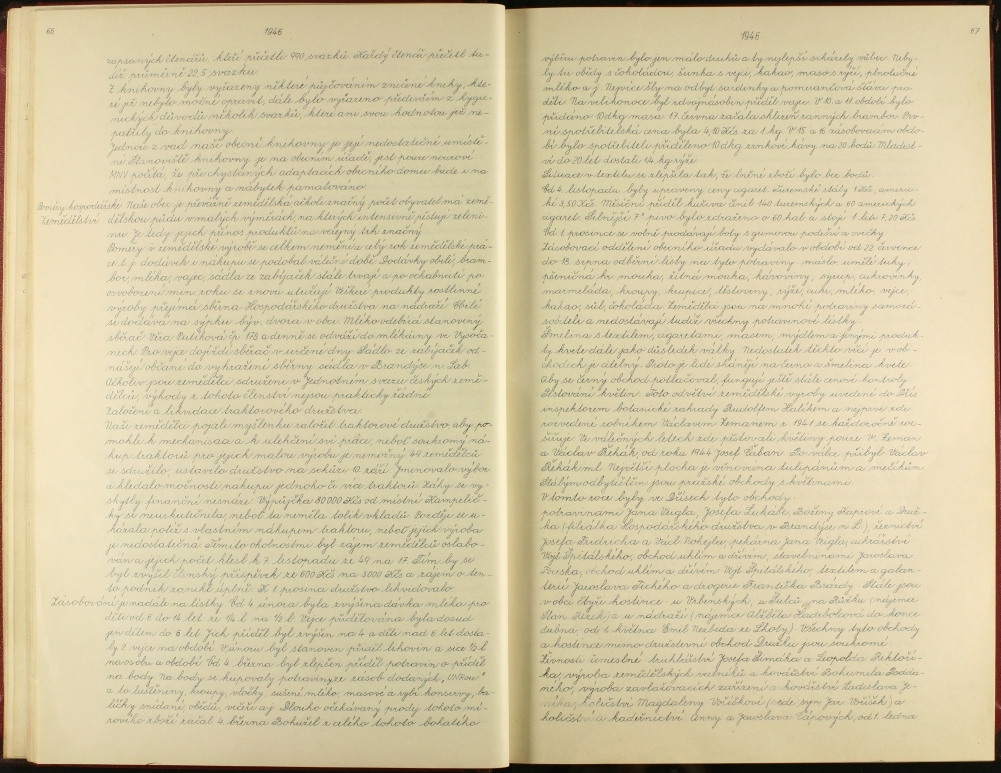 66
1946
zapsaných čtenářů, kteří přečetli 990 svazků. Každý čtenář přečetl tu-
díž průměrně 22,5 svazku.
Z knihovny byly vyřazeny některé půjčováním zničené knihy, kte-
ré již nebylo možné opravit, dále bylo vyřazeno především z hygie-
nických důvodů několik svazků, které ani svou hodnotou již ne-
patřily do knihovny.
Jednou z vad naší obecní knihovny je její nedostatečné umístě-
ní. Stanoviště knihovny je na obecním úřadě, jest pouze nouzové.
MNV počítá, že při chystaných adaptacích obecního domu bude i na
místnost knihovny a nábytek pamatováno.
Poměry hospodářské Naše obec je převážně zemědělská ačkoli značný počet obyvatel má země-
Zemědělství dělskou půdu v malých výměrách, na kterých intensivně pěstuje zeleni-
nu. Je tedy jejich přínos produktů na veřejný trh značný.
Poměry v zemědělské výrobě se celkem nemění a aby rok zemědělské prá-
ce t. j. dodávek a nákupu se podobal válečné době. Dodávky obilí, bram-
bor, mléka, vajec, sádla ze zabíjaček stále trvají a po ochabnutí po
osvobození min. roku se znovu utužují. Veškeré produkty rostlinné
výroby přejímá sběrna Hospodářského družstva na nádraží. Obilí
se dodává na sýpku býv. dvora v obci. Mléko odebírá stanovený
sběrač Věra Vulíková čp. 178 a denně se odváží do mlékárny ve Vysoča-
nech. Pro vejce dojíždí sběrač v určené dny. Sádlo ze zabíjaček od-
nášejí občané do vyhrazené sběrny sádla v Brandýse n. Lab.
Ačkoliv jsou zemědělci sdruženi v Jednotném svazu českých země-
dělců, výhody z tohoto členství nejsou prakticky žádné.
Založení a likvidace traktorového družstva.
Naši zemědělci pojali myšlenku založit traktorové družstvo, aby po-
mohli k mechanisaci a k ulehčení své práce, neboť soukromý ná-
kup traktorů pro jejich malou výrobu je nemožný. 49 zemědělců
se sdružilo, ustavilo družstvo na schůzi 10. září. Jmenovalo výbor
a hledalo možnosti nákupu jednoho či více traktorů. Záhy se vy-
skytly finanční nesnáze. Výpůjčka 80 000 Kčs od místní Kampelič-
ky se neuskutečnila, neboť ta neměla tolik vkladů. Později se u-
kázala potíž s vlastním nákupem traktoru, neboť jejich výroba
je nedostatečná. Těmito okolnostmi byl zájem zemědělců oslabo-
ván a jejich počet klesl k 7. listopadu ze 49 na 17. Tím by se
byl zvýšil členský příspěvek ze 600 Kčs na 3000 Kčs a zájem o ten-
to podnik zanikl úplně. K 1. prosinci družstvo likvidovalo.
Zásobování je nadále na lístky. Od 4. února byla zvýšena dávka mléka pro
děti od 6 do 14 let ze 1/4 l na 1/2 l. Vejce přidělována byla dosud
jen dětem do 6 let. Jich příděl byl zvýšen na 4 a děti nad 6 let dosta-
ly 2 vejce na období. V únoru byl stanoven příděl lihovin a sice 1/2 l
na osobu a období. Od 4. března byl zlepšen příděl potravin o příděl
na body. Na body se kupovaly potraviny ze zásob dodaných „UNRou“
a to luštěniny, kroupy, vločky, sušené mléko, masové a rybí konservy, ba-
líčky snídaní, obědů, večeří aj. Dlouho očekávaný prodej tohoto mí-
rového zboží začal 4. března. Bohužel z celého tohoto bohatého
67
1946
výběru potravin bylo jen málo druhů a ty nejlepší scházely vůbec. Neby-
ly tu obědy s čokoládou, šunka s vejci, kakao, maso s rýží, plnotučné
mléko a j. Nejvíce šly na odbyt sardinky a pomerančová šťáva pro
děti. Na velikonoce byl zdvojnásoben příděl vajec. V 10. a 11. období bylo
přidáno 10 dkg masa. 17. června začala sklizeň raných brambor. Prv-
ní spotřebitelská cena byla 4,10 Kčs za 1 kg. V 15. a 16. zásobovacím obdo-
bí bylo spotřebiteli přiděleno 10 dkg zrnkové kávy na 20 bodů. Mladist-
ví do 20 let dostali 1/4 kg rýže.
Situace v textilu se zlepšila tak, že lněné zboží bylo bez bodů.
Od 4. listopadu byly upraveny ceny cigaret. Tuzemské stály 1 Kčs, ameri-
ké 3,50 Kčs. Měsíční příděl kuřiva činil 140 tuzemských a 60 amerických
cigaret. Silnější 7° pivo bylo zdraženo o 60 hal. a stojí 1 litr 7,20 Kčs.
Od 1. prosince se volně prodávají boty s gumovou podešví a svíčky.
Zásobovací oddělení obecního úřadu vydávalo v období od 22. července
do 18. srpna odběrní lístky na tyto potraviny: máslo, umělé tuky,
pšeničná kr. mouka, žitná mouka, kávoviny, syrup, cukrovinky,
marmeláda, kroupy, krupice, těstoviny, rýže, cukr, mléko, vejce,
kakao, sůl, čokoláda. Zemědělci jsou na mnohé potraviny samozá-
sobiteli a nedostávají tudíž všechny potravinové lístky.
Šmelina s textilem, cigaretami, masem, mýdlem a jinými produk-
ty kvete dále jako důsledek války. Nedostatek těchto věcí je v ob-
chodech je citelný. Proto je lidé shánějí na černo a šmelina kvete.
Aby se černý obchod potlačoval, fungují ještě stále cenové kontroly.
Pěstování květin. Toto odvětví zemědělské výroby uvedeno do Dřís
inspektorem botanické zahrady Rudolfem Halíkem a nejprve zde
rozvedené rolníkem Václavem Zemanem r. 1941 se každoročně roz-
šiřuje. Ve válečných letech zde pěstovali květiny pouze V. Zeman
a Václav Řehák, od roku 1944 Josef Čában. Po válce přibyl Václav
Řehák ml. Největší plocha je věnována tulipánům a mečíkům.
Stálým odbytištěm jsou pražské obchody s květinami.
V tomto roce byly ve Dřísech tyto obchody:
potravinami Jana Veigla, Josefa Lukáše, Boženy Kaprové a Druž-
ka (filiálka Hospodářského družstva v Brandýse n. L.), řeznictví
Josefa Fridricha a Václ. Nohejla, pekárna Jana Veigla, cukrářství
Vojt. Špitálského, obchod uhlím a dřívím, stavebninami Jaroslava
Houska, obchod uhlím a dřívím Vojt. Špitálského, textilem a galan-
terií Jaroslava Tichého a drogerie Františka Brzdy. Stále jsou
v obci čtyři hostince: u Vrbenských, u Šulců, na Růžku (nájemce
Stan. Řezek) a u nádraží (nájemce Alžběta Houdková do konce
dubna, od 1. května Emil Nezbeda ze Lhoty). Všechny tyto obchody
a hostince mimo družstevní obchod Družku jsou soukromé.
Živnosti řemeslné: truhlářství Josefa Šimáka a Leopolda Rektoří-
ka, výroba zemědělských valníků a kovářství Bohumila Podda-
ného, výroba zavlažovacích zařízení a kovářství Ladislava Je-
níka, holičství Magdaleny Voříškové (vede syn Jar. Voříšek) a
holičství a kadeřnictví Anny a Jaroslava Čápových, od 1. ledna